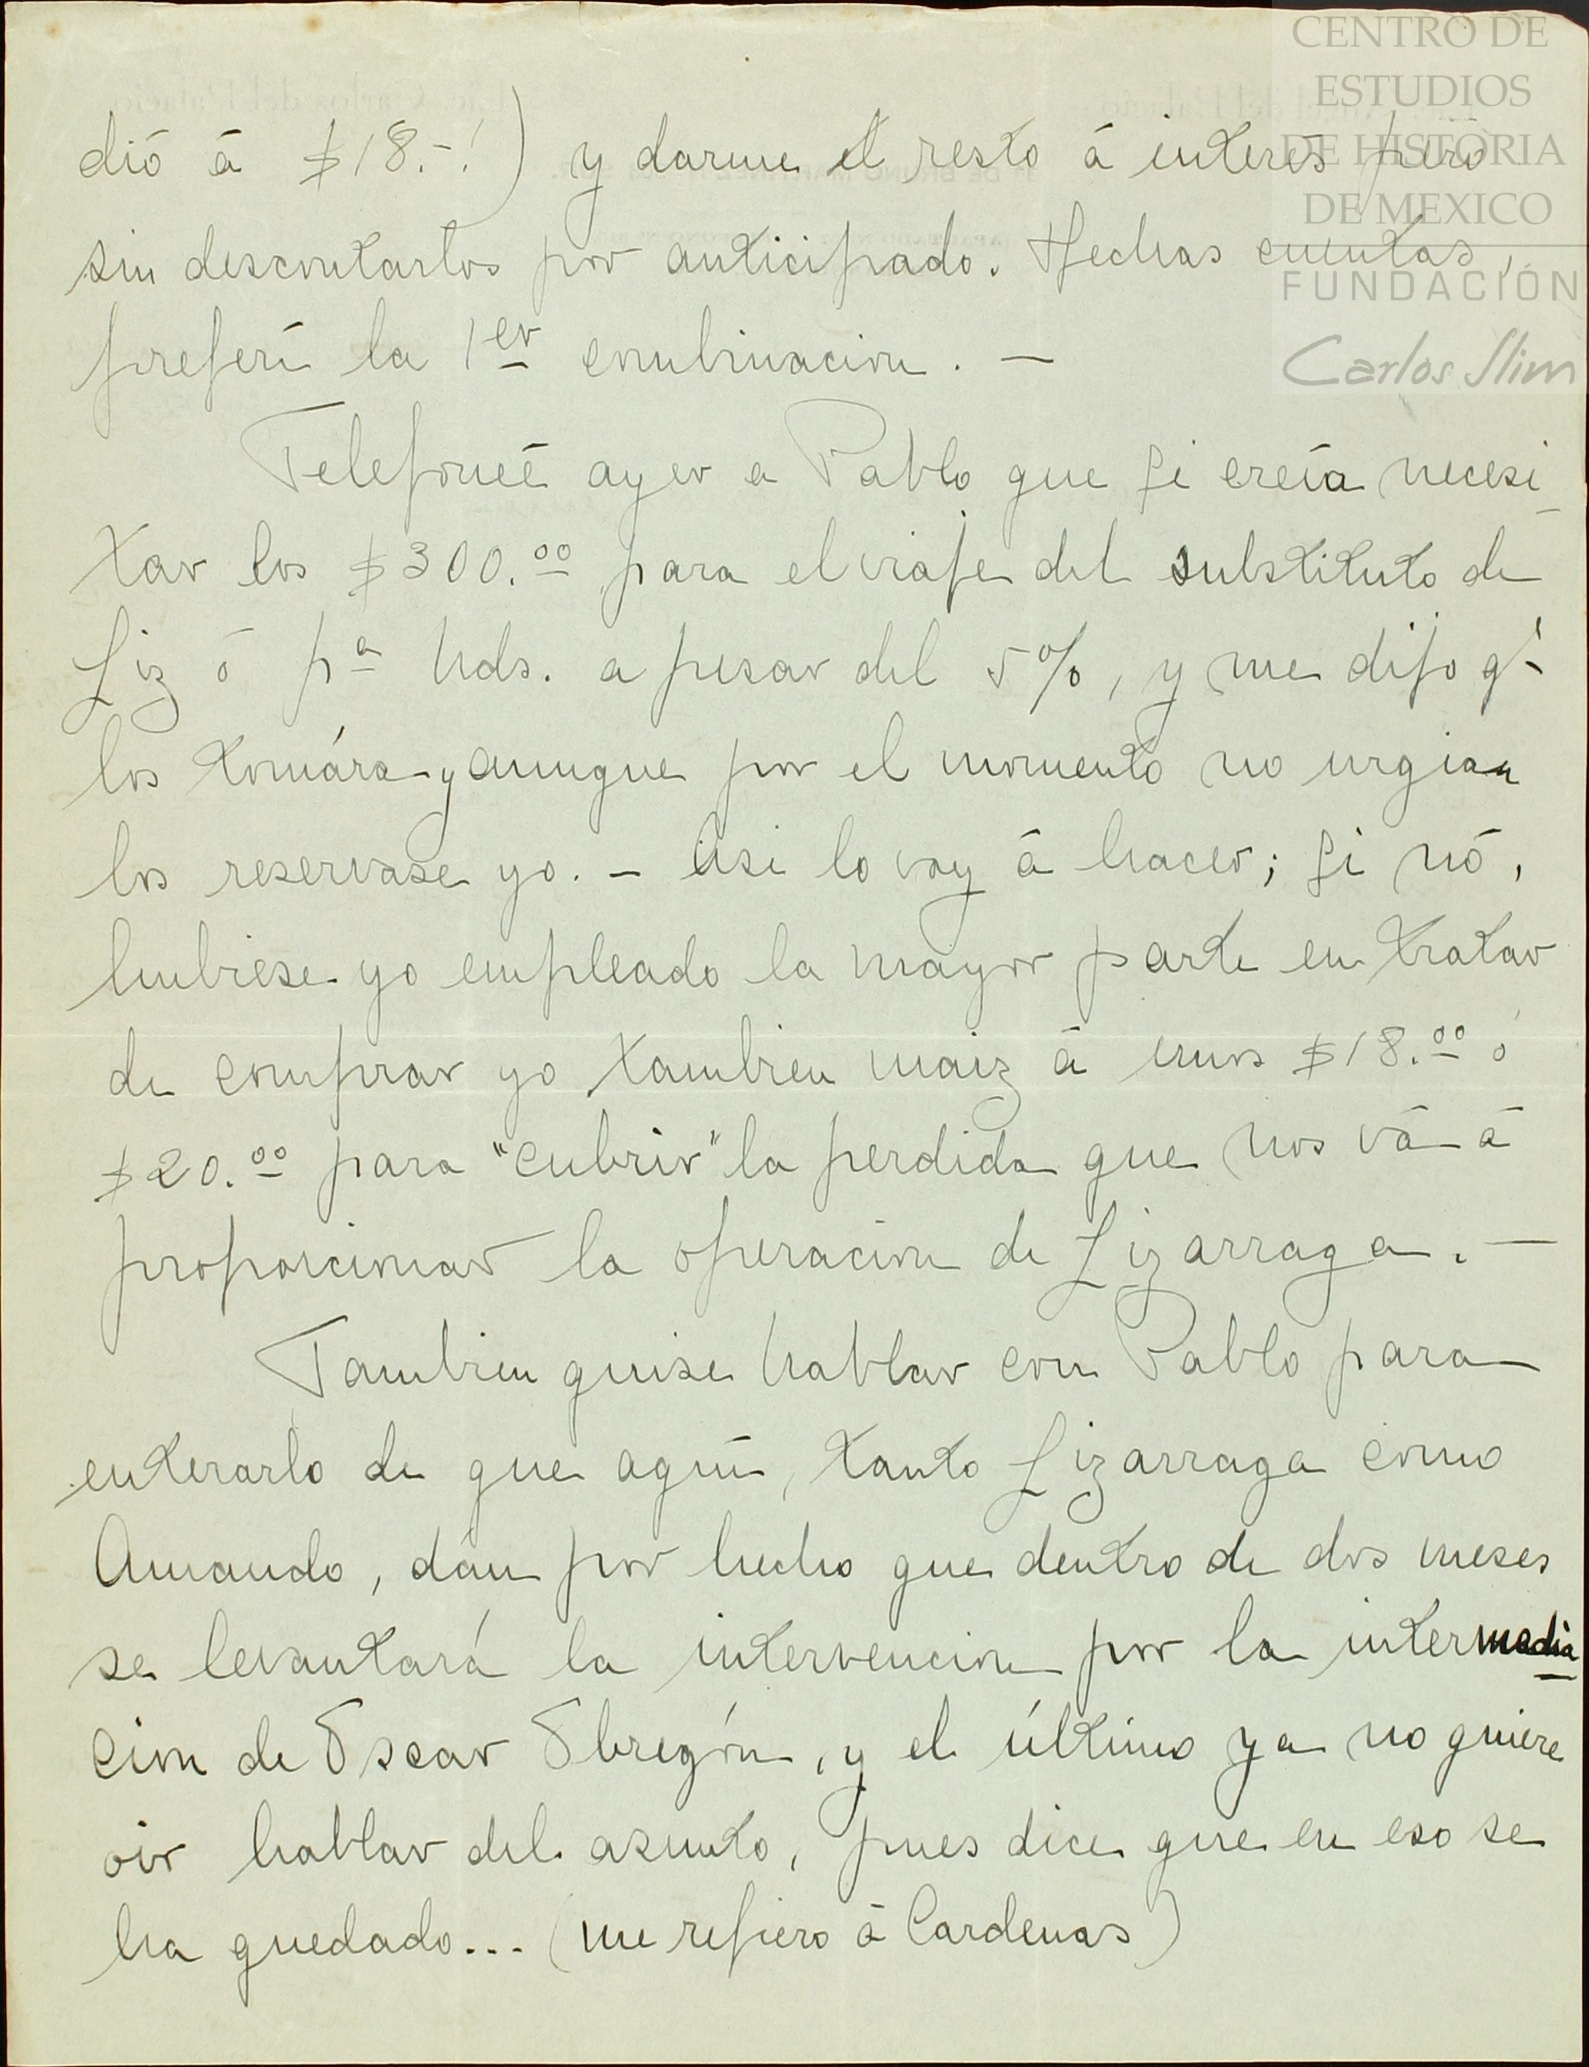 CENTRO DE
ESTUDIOS
DE HISTORIA
DE MEXICO
FUNDACIÓN
Carlos Slim
dió á $18.-!) y darme el resto á interés pero
sin descontarlos por anticipado. Hechas cuentas,
preferí la 1er combinacion. —
Telefoneé ayer a Pablo que si creía necesi-
tar los $300.00 para el viaje del substituto de
Liz ó pa Uds. a pesar del 5%, y me dijo q'
los tomára y aunque por el momento no urgian
los reservase yo. - Asi lo voy á hacer; si nó,
hubiese yo empleado la mayor parte en tratar
de comprar yo tambien maiz á unos $18.00 ó
$20.00 para "cubrir" la perdida que nos vá á
proporcionar la operacion de Lizarraga. —
Tambien quise hablar con Pablo para
enterarlo de que aquí, tanto Lizarraga como
Amando, dán por hecho que dentro de dos meses
se levantará la intervencion por la intermedia-
cion de Oscar Obregón, y el último ya no quiere
oir hablar del asunto, pues dice que en eso se
ha quedado... (me refiero á Cardenas)